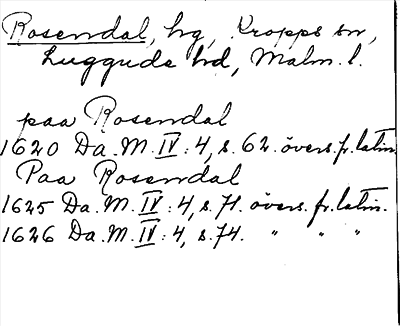 Rosendal, hg, Kropps sn,
Luggude hd, Malm. l.
paa Rosendal
1620 Da. M. IV: 4, s. 62. övers. fr. latin.
Paa Rosendal
1625 Da. M. IV: 4, s. 71. övers. fr. latin.
1626 Da. M. IV: 4, s. 74. " " "